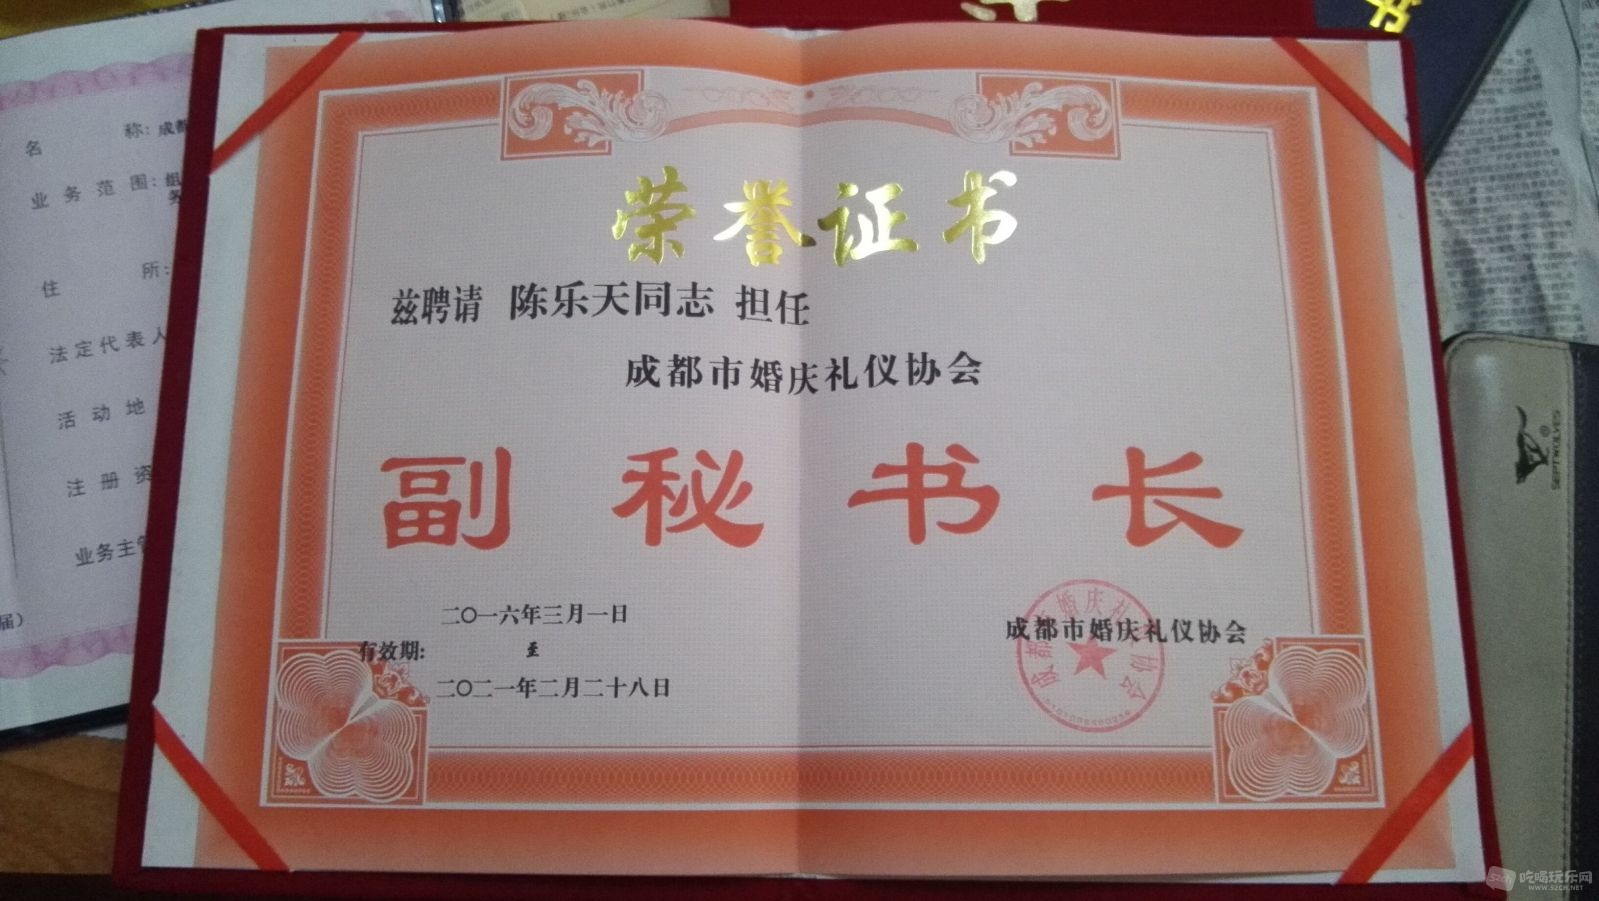 荣誉证书
兹聘请 陈乐天同志 担任
成都市婚庆礼仪协会
副秘书长
二〇一六年三月一日
有效期: 至
二〇二一年二月二十八日
成都市婚庆礼仪协会
成都市婚庆礼仪协会
名 称: 成都
业务范围: 组
务
住 所:
法定代表人
活动地
注册资
业务主管
届)
书
SEPTWOLVES
吃喝玩乐网
WWW.52CH.NET